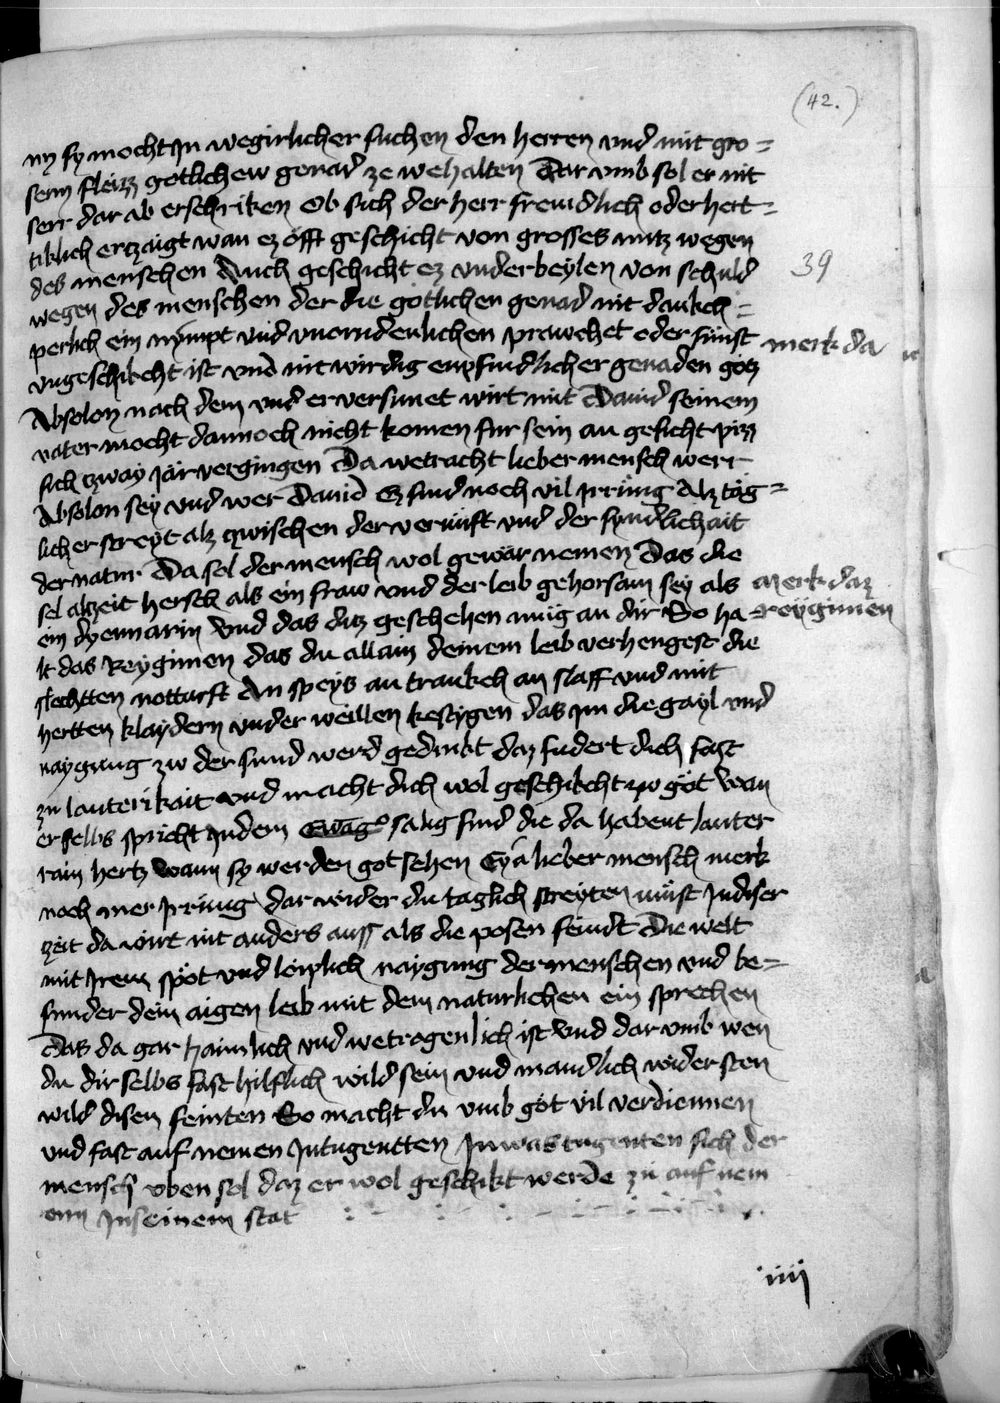 (42.)
ny sy mocht In wegirlicher suchen den herren vnd mit gro=
sem fleizz gotlichew genad ze wehalten Dar vmb sol er nit
serr dar ab erschriken Ob sich der herr fremdlich oder hert=
tiklich ertzaigt wan ez offt geschicht von grosses nutz wegen
des menschen Auch geschicht ez vnderbeylen von schuld
39
wegen des menschen der die götlichen genad nit dankch=
perlich ein nympt vnd vnorndenlichen prawchet oder sünst
merk da
vngeschikcht ist vnd nit wirdig enpfindlicher genaden gotz
Absolon nach dem vnd er versunet wirt mit Dauid seinem
vater mocht dannoch nicht komen fur sein an gesicht pizz
sich tzway Jar vergingen Da wetracht lieber mensch werr
Absolon sey vnd wer Dauid Ez sind noch vil Irrüng Alz täg=
licher streyt alz zwischen der vernüft vnd der syndlichait
der natur Da sol der mensch wol gewar nemen Das die
sel alzeit hersch als ein fraw vnd der leib gehorsam sey als
merk daz
ein dyennarin Vnd das ditz geschehen müg an dir So ha
reygimen
lt das Reygimen das du allain deinem leib verhengest die
slechtten notturft An speys an trankch an slaff vnd mit
hertten klaydern vnder weillen kestygen das im die gayl vnd
naygung zw der sund werd gedrukt daz fudert dich fast
zu lauterikait vnd macht dich wol geschikcht zu göt Wan
er selbs spricht Indem Ewãgº salig sind die da habent lauter
rain hertz wann sy werden got sehen Eyã lieber mensch merk
noch mer Irrüng dar wider du taglich streyten müst In diser
zeit da wirt nit anders auss als die posen feindt Die welt
mit Irem spöt vnd löiplich naygung der menschen vnd be=
sunder dein aigen leib mit dem naturlichen ein sprechen
Das da gar haimlich vnd wetrogenlich ist Vnd dar vmb wen
du dir selbs fast hilflich wild sein vnd mandlich wider sten
wild disen feinten So macht du vmb göt vil verdiennen
vnd fast auf nemen In tugentten In was tugenten sich der
mensch vben sol daz er wol geschikt werde zu auf nem
enn In seinem stat
iiij